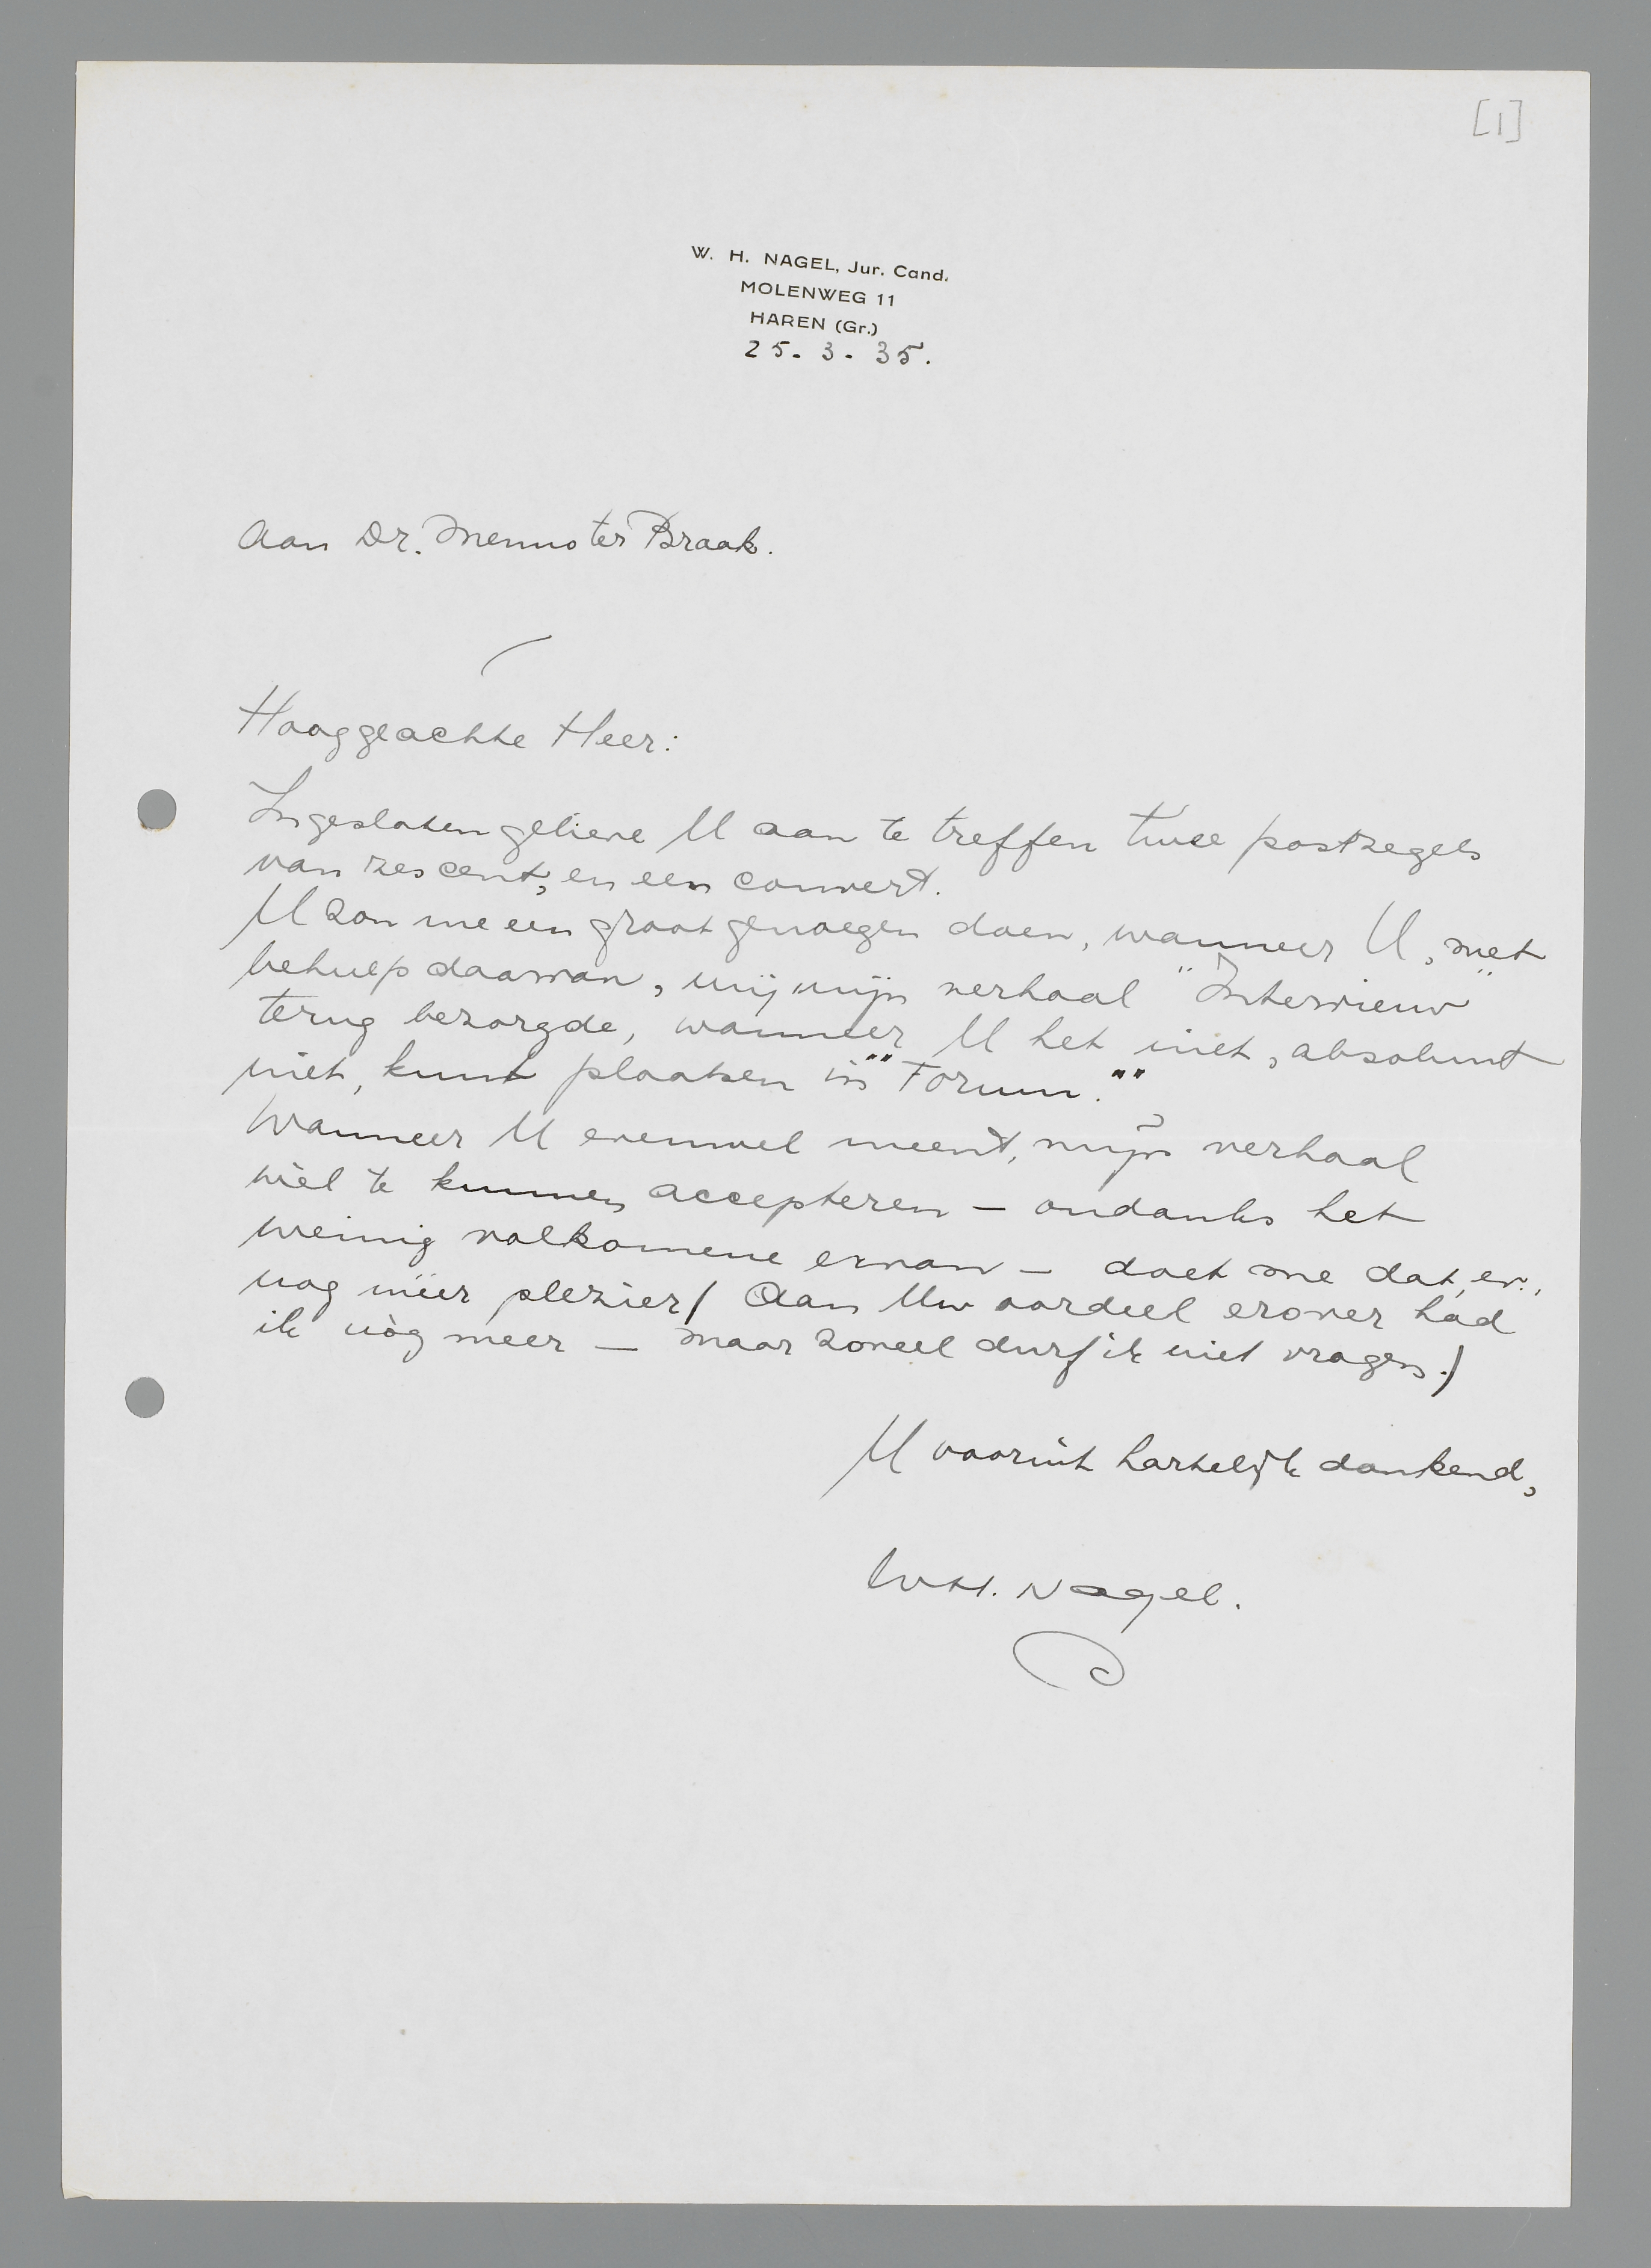 [1]
W. H. NAGEL, Jur. Cand.
MOLENWEG 11
HAREN (Gr.)
25. 3. 35.
Aan Dr. Menno ter Braak.
Hooggeachte Heer:
Ingesloten gelieve U aan te treffen twee postzegels
van zes cent, en een couvert.
U zou me een groot genoegen doen, wanneer U, met
behulp daarvan, mij mijn verhaal "Interview"
terug bezorgde, wanneer U het niet, absoluut
niet, kunt plaatsen in "Forum."
Wanneer U evenwel meent, mijn verhaal
wèl te kunnen accepteren – ondanks het
weinig volkomene ervan – doet me dat, ev.,
nog méér plezier! Aan Uw oordeel erover had
ik nòg meer — maar zoveel durf ik niet vragen!
U vooruit hartelijk dankend,
W.H. Nagel.